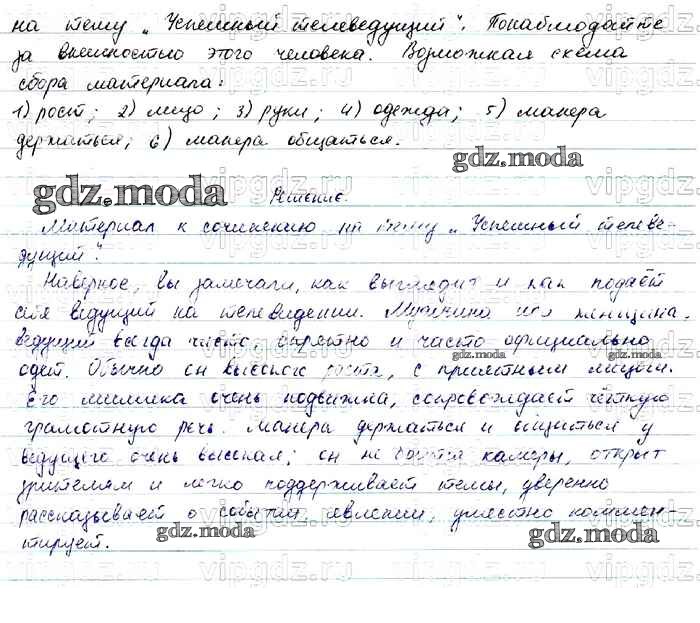 на тему „Успешный телеведущий". Понаблюдайте
за внешностью этого человека. Возможная схема
сбора материала:
1) рост; 2) лицо; 3) руки; 4) одежда; 5) манера
держаться; 6) манера общаться.
gdz.moda
Решение.
Материал к сочинению на тему „Успешный телеве-
дущий".
Наверное, вы замечали, как выглядит и как подаёт
себя ведущий на телевидении. Мужчина или женщина,
ведущий всегда чисто, опрятно и часто официально
одет. Обычно он высокого роста, с приятным лицом.
Его мимика очень подвижна, сопровождает чёткую
грамотную речь. Манера держаться и общаться у
ведущего очень высокая; он не боится камеры, открыт
зрителям и легко поддерживает темы, уверенно
рассказывает о событии, явлении, уместно коммен-
тирует.
gdz.moda
gdz.moda
gdz.moda
gdz.moda
gdz.moda
vipgdz.ru